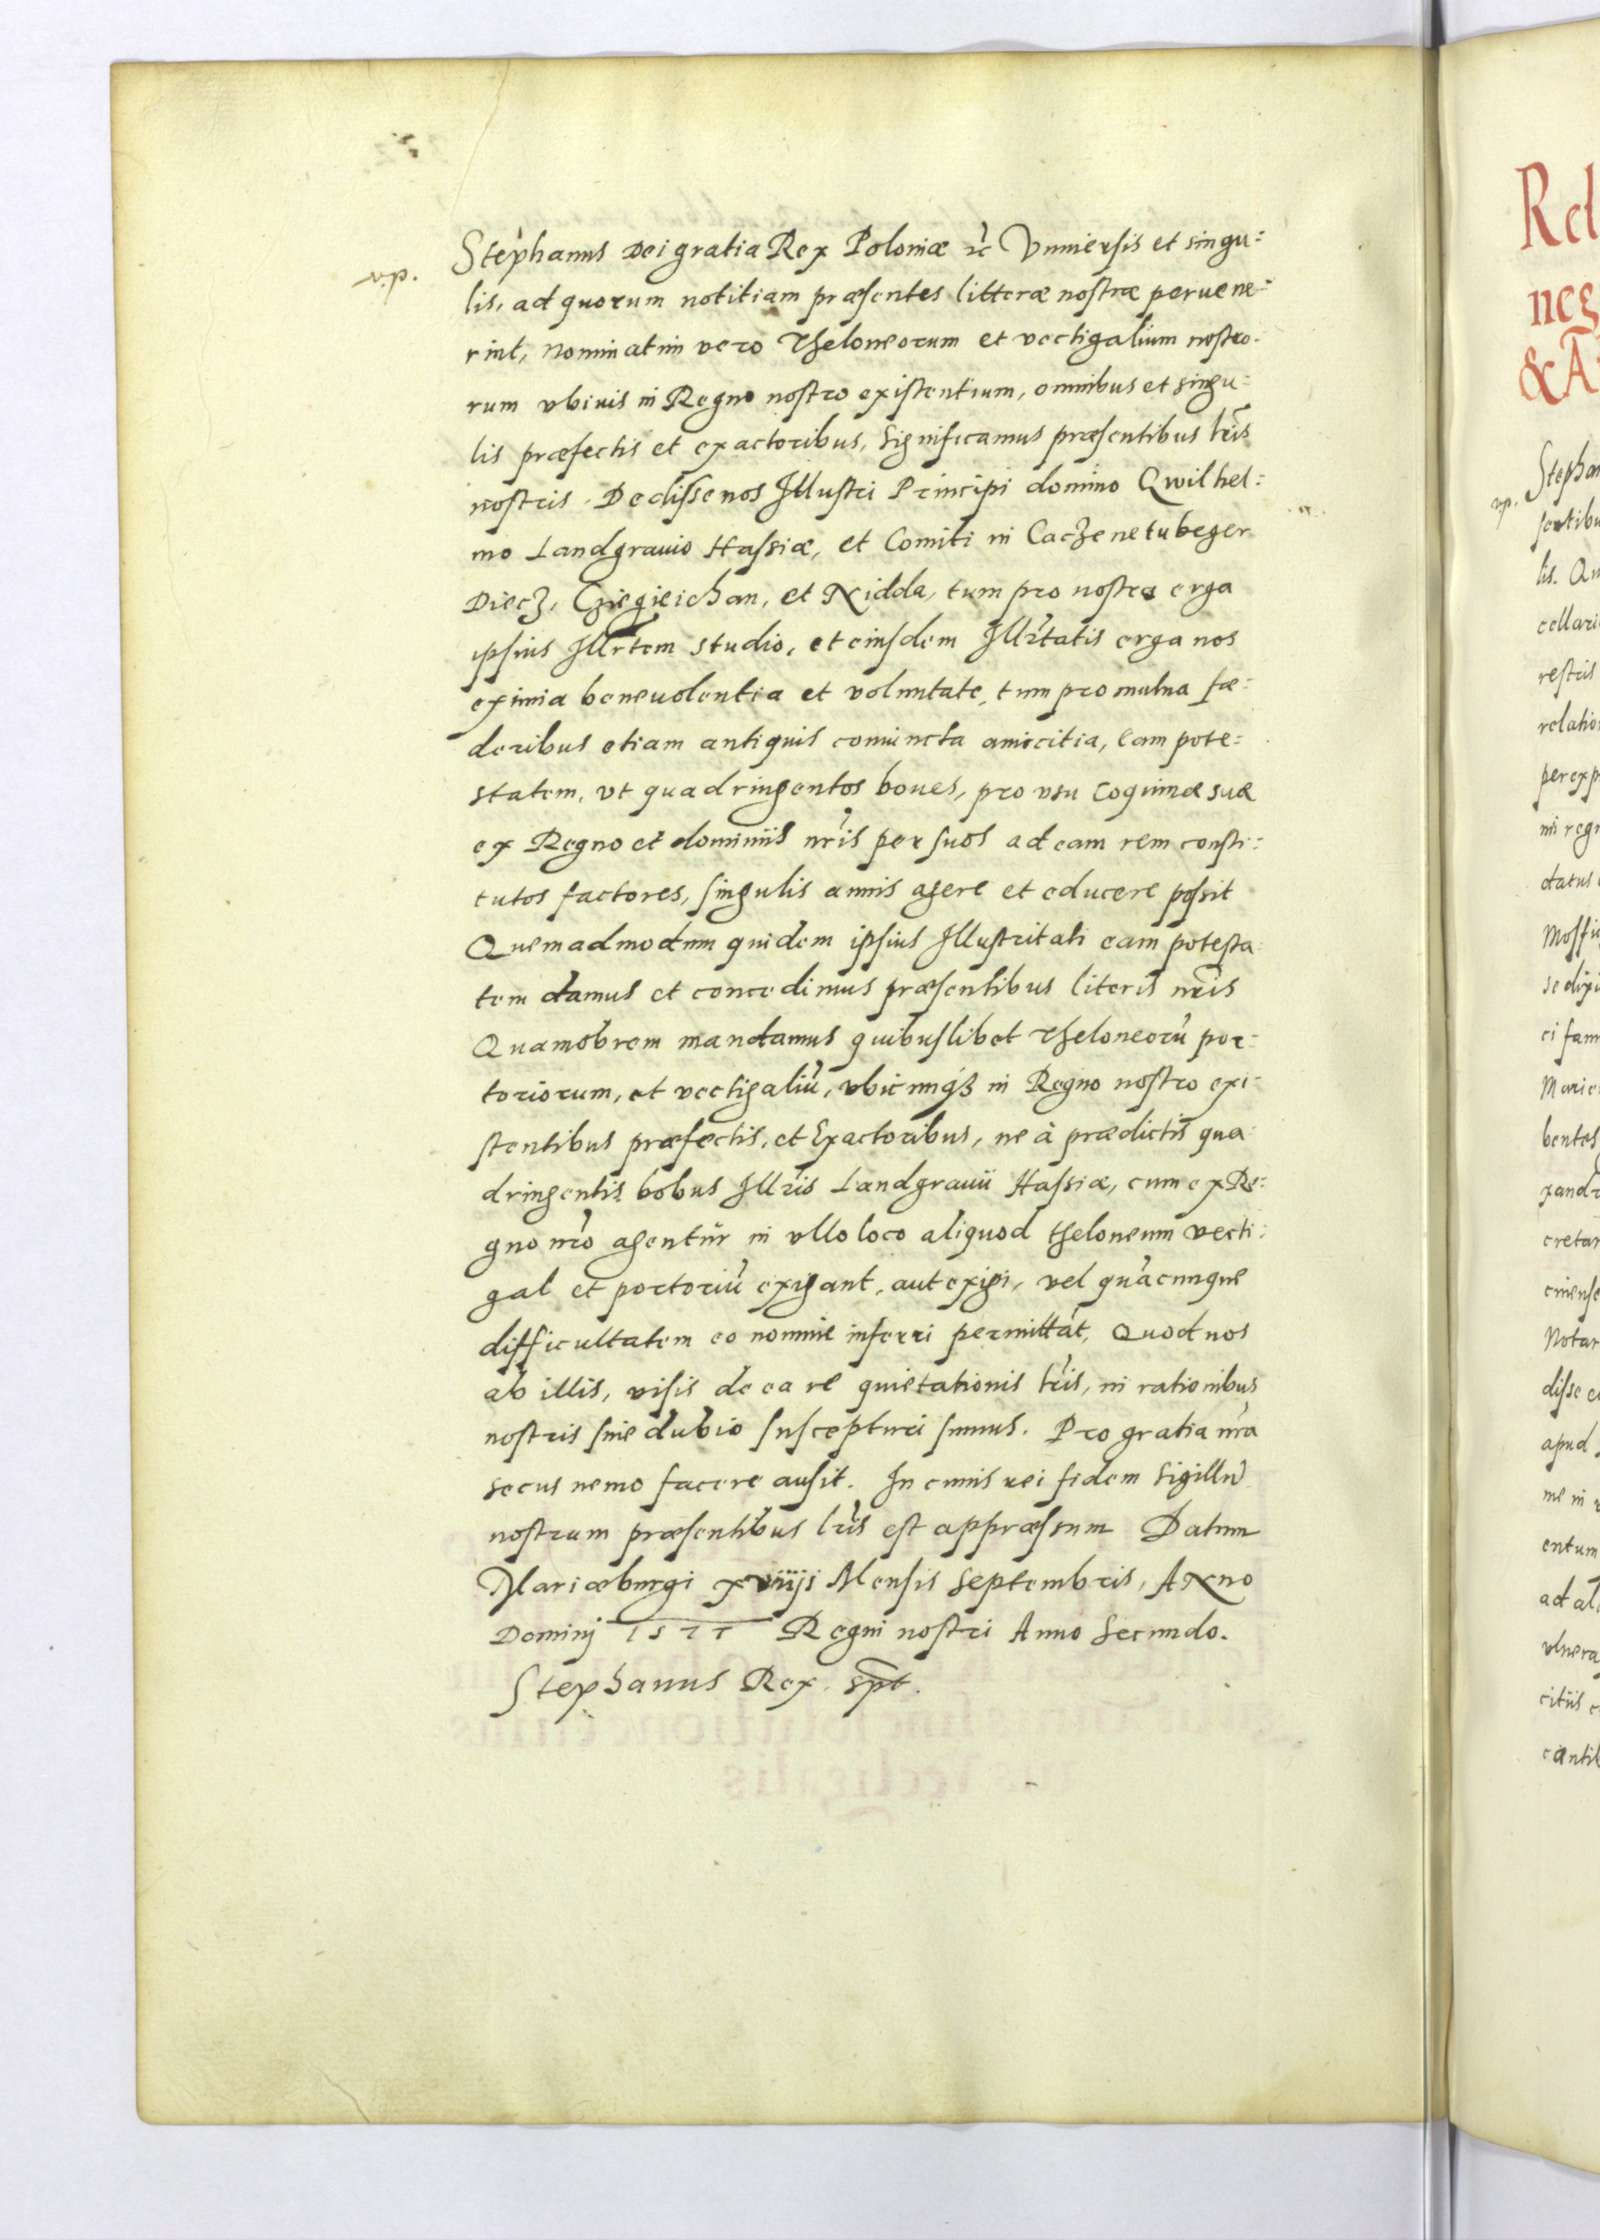 v.p.
Stephanus Dei gratia Rex Poloniæ &c Vniuersis et singu:
lis, ad quorum notitiam præsentes litteræ nostræ peruene:
rint, nominatim vero Theloneorum et vectigalium nostro:
rum vbiuis in Regno nostro existentium, omnibus et singu:
lis præfectis et exactoribus, Significamus præsentibus lris
nostris. Dedisse nos Illustri Principi domino Qwilhel:
mo Landgrauio Hassiæ, et Comiti in Caczenetubeger
Diecz, Cziegieichan, et Nidda, tum pro nostro erga
ipsius Illrtem studio, et eiusdem Illrtatis erga nos
eximia beneuolentia et voluntate, tum pro mutua fæ:
deribus etiam antiquis coniuncta amicitia, eam pote:
statem, vt quadringentos boues, pro vsu coquinæ suæ
ex Regno et dominiis nris per suos ad eam rem consti:
tutos factores, singulis annis agere et educere possit
Quemadmodum quidem ipsius Illustritati eam potesta:
tem damus et concedimus præsentibus literis nris
Quamobrem mandamus quibuslibet Theloneorũ por:
toriorum, et vectigaliũ, vbicunqꝫ in Regno nostro exi:
stentibus præfectis, et Exactoribus, ne à prædictis qua:
dringentis bobus Illris Landgrauii Hassiæ, cum ex Re:
gno nro agentur in vllo loco aliquod theloneum vecti:
gal et portoriũ exigant, aut exigi, vel quãcunque
difficultatem eo nomine inferri permittãt, Quod nos
ab illis, visis de ea re quietationis lris, in rationibus
nostris sine dubio suscepturi sumus. Pro gratia nra
secus nemo facere ausit. In cuius rei fidem Sigillũ
nostrum præsentibus lris est appræssum Datum
Mariæburgi xviiij Mensis Septembris, ANno
Dominj 1577 Regni nostri Anno Secundo.
Stephanus Rex. spt.
Rel
neg
& A
vp.
Stephan
sentibu
lis. Qu
cellari
restris
relatio
per exp
ni regn
datus
Mossiu
se dixi
ci fam
Marie
bentes
xandr
cretar
ciense
Notar
disse e
apud
me in
entum
ad al
vlnera
citiis c
cantib